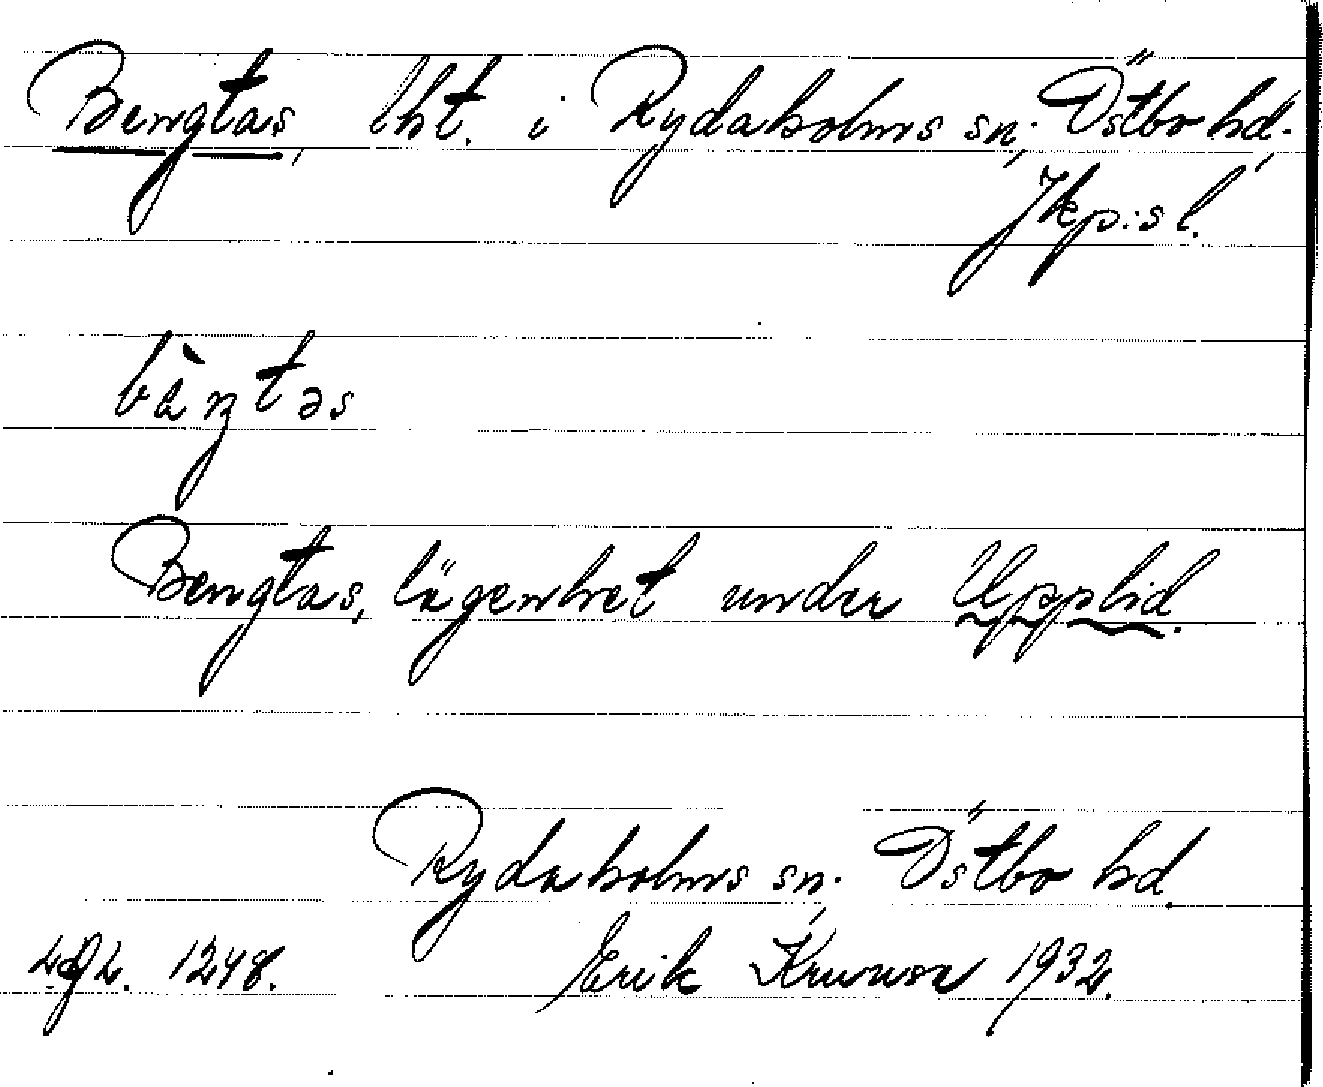 Bengtas, lht. i Rydaholms sn, Östbo hd,
Jkp:s l.
bàŋtəs
Bengtas, lägenhet under Upplid.
Rydaholms sn. Östbo hd
1248. Erik 1932.